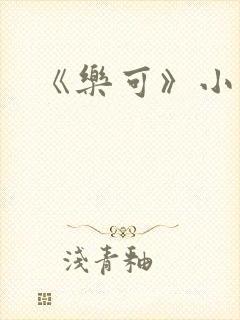 《樂可》小
淺青釉